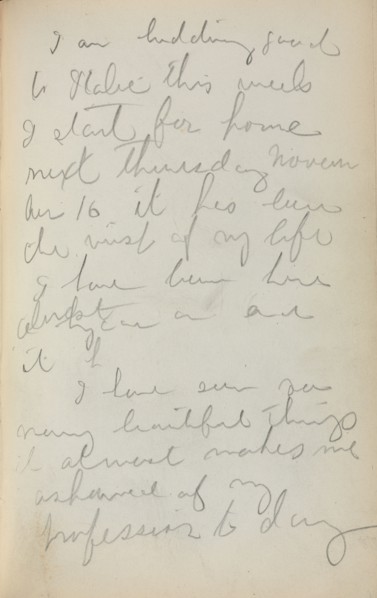 I am bidding good
to Italie this week
I start for home
next Thursday Novem
ber 16 it has been
the most of my life
I have been here
almost year and
it
I have seen so
many beautiful things
it almost makes me
ashamed of my
profession to day